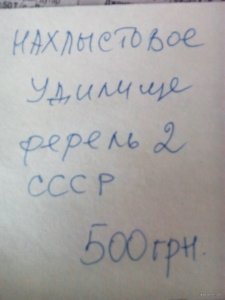 НАХЛЫСТОВОЕ
УДИЛИЩЕ
ФЕРЕЛЬ 2
СССР
500 грн.